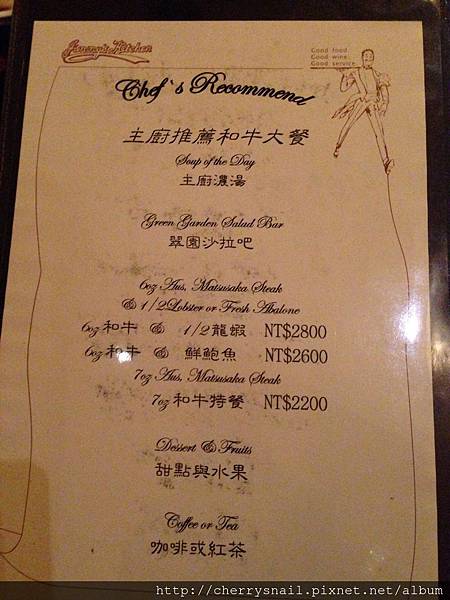 Jimmy's Kitchen
Good food
Good wine
Good service
Chef's Recommend
主廚推薦和牛大餐
Soup of the Day
主廚濃湯
Green Garden Salad Bar
翠園沙拉吧
6oz Aus, Matsusaka Steak
& 1/2 Lobster or Fresh Abalone
6oz 和牛 & 1/2龍蝦 NT$2800
6oz 和牛 & 鮮鮑魚 NT$2600
7oz Aus, Matsusaka Steak
7oz 和牛特餐 NT$2200
Dessert & Fruits
甜點與水果
Coffee or Tea
咖啡或紅茶
http://cherrysnail.pixnet.net/album